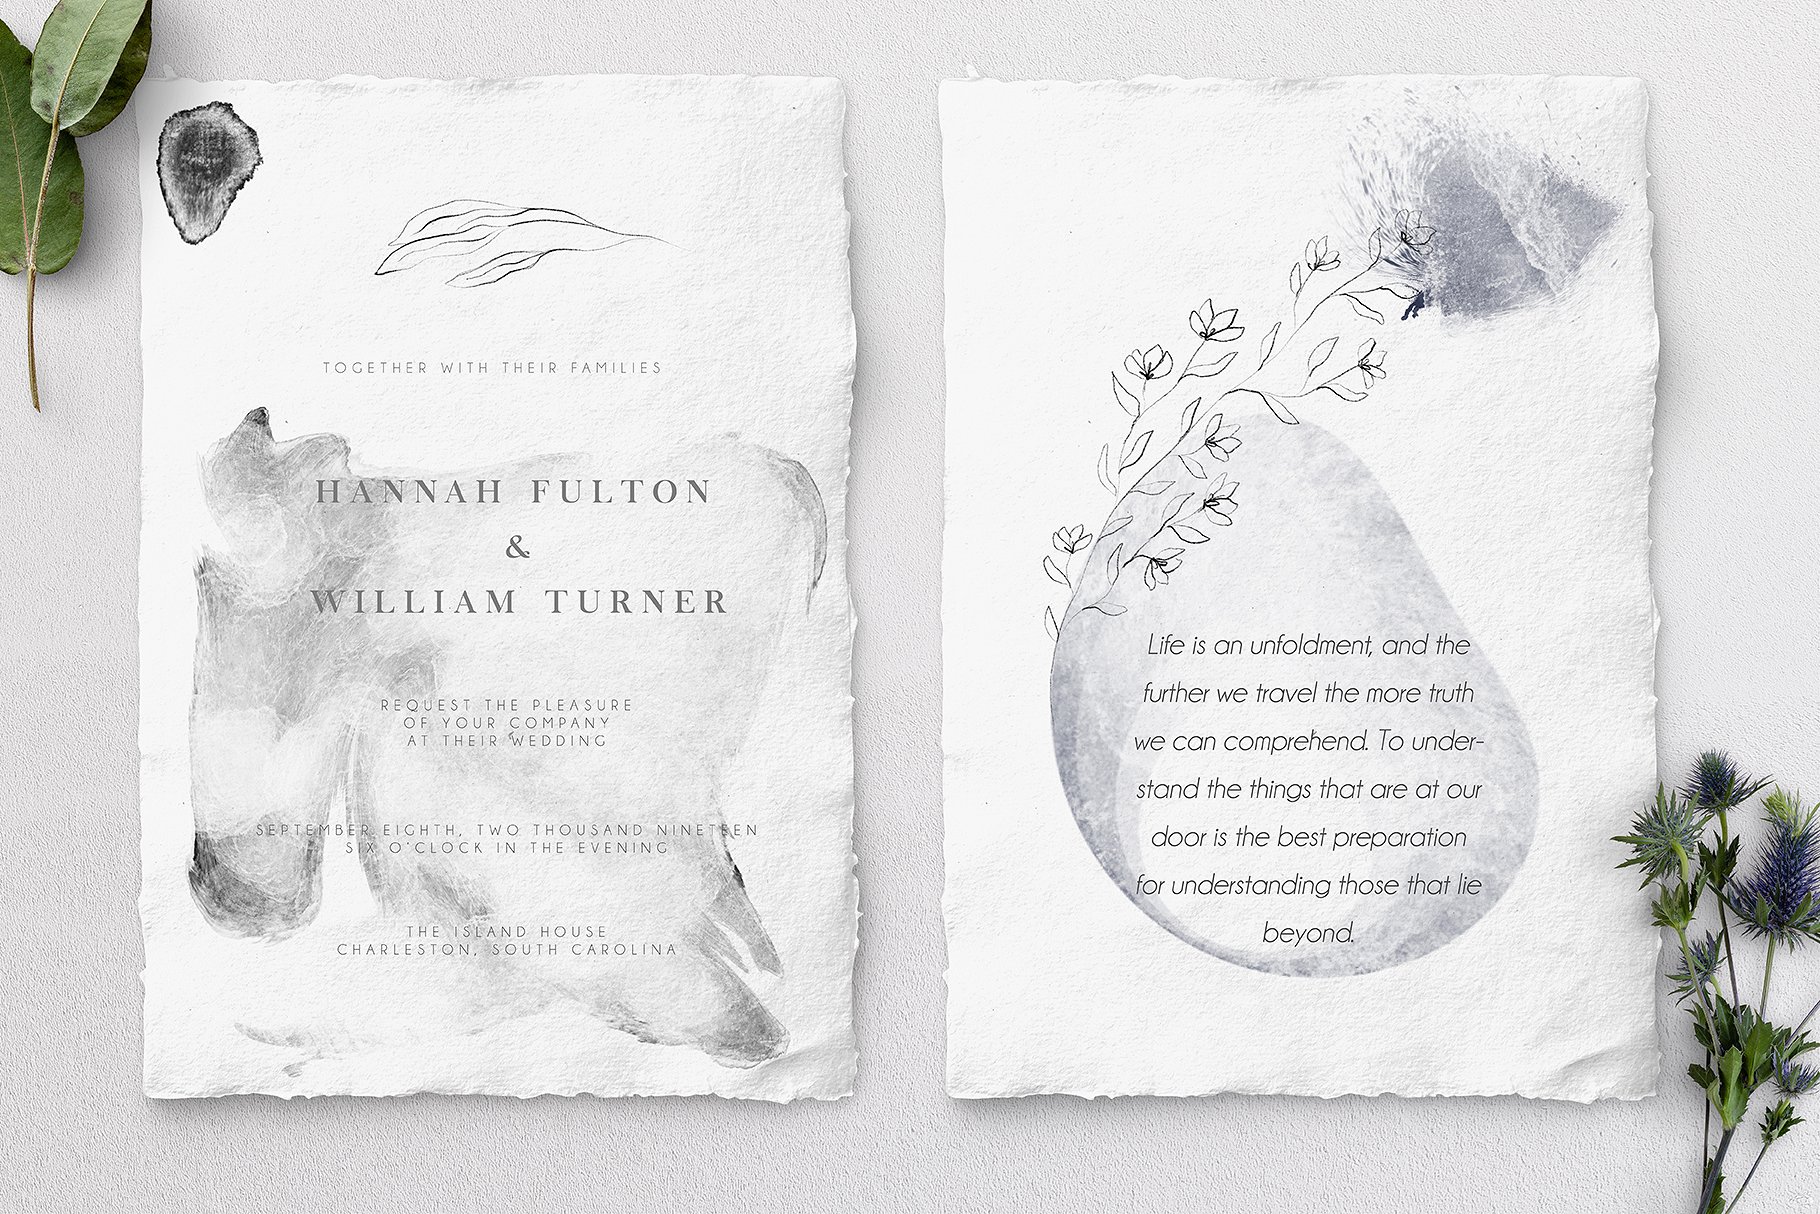 TOGETHER WITH THEIR FAMILIES
HANNAH FULTON
&
WILLIAM TURNER
REQUEST THE PLEASURE
OF YOUR COMPANY
AT THEIR WEDDING
SEPTEMBER EIGHTH, TWO THOUSAND NINETEEN
SIX O'CLOCK IN THE EVENING
THE ISLAND HOUSE
CHARLESTON, SOUTH CAROLINA
Life is an unfoldment, and the
further we travel the more truth
we can comprehend. To under-
stand the things that are at our
door is the best preparation
for understanding those that lie
beyond.